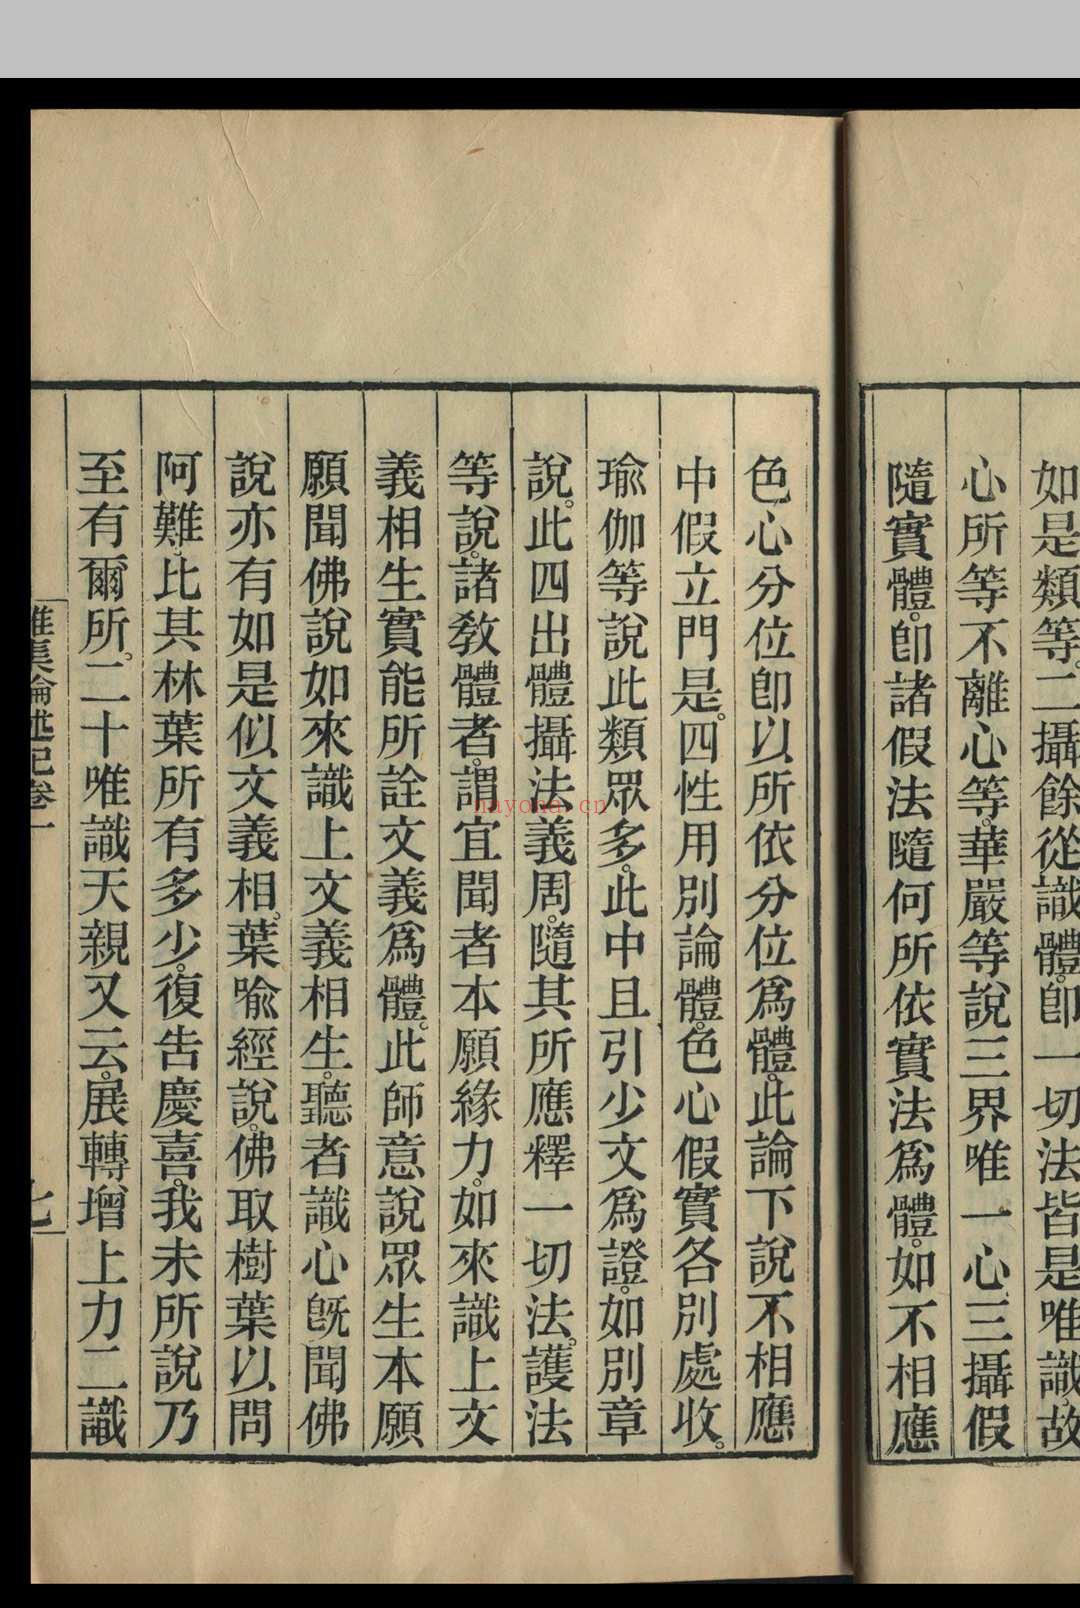 如是類等。二攝餘從識體。卽一切法皆是唯識故
心所等不離心等。華嚴等說三界唯一心。三攝假
隨實體。卽諸假法隨何所依實法爲體。如不相應
色心分位卽以所依分位爲體。此論下說不相應
中假立門是。四性用別論體。色心假實各別處收。
瑜伽等說此類眾多。此中且引少文爲證。如別章
說。此四出體攝法義周。隨其所應釋一切法。護法
等說。諸敎體者。謂宜聞者本願緣力。如來識上文
義相生實能所詮文義爲體。此師意說眾生本願
願聞佛說如來識上文義相生。聽者識心旣聞佛
說亦有如是似文義相。葉喻經說。佛取樹葉以問
阿難。比其林葉所有多少。復告慶喜。我未所說乃
至有爾所。二十唯識天親又云。展轉增上力二識
雜集論述記卷一
七
nayona.cn